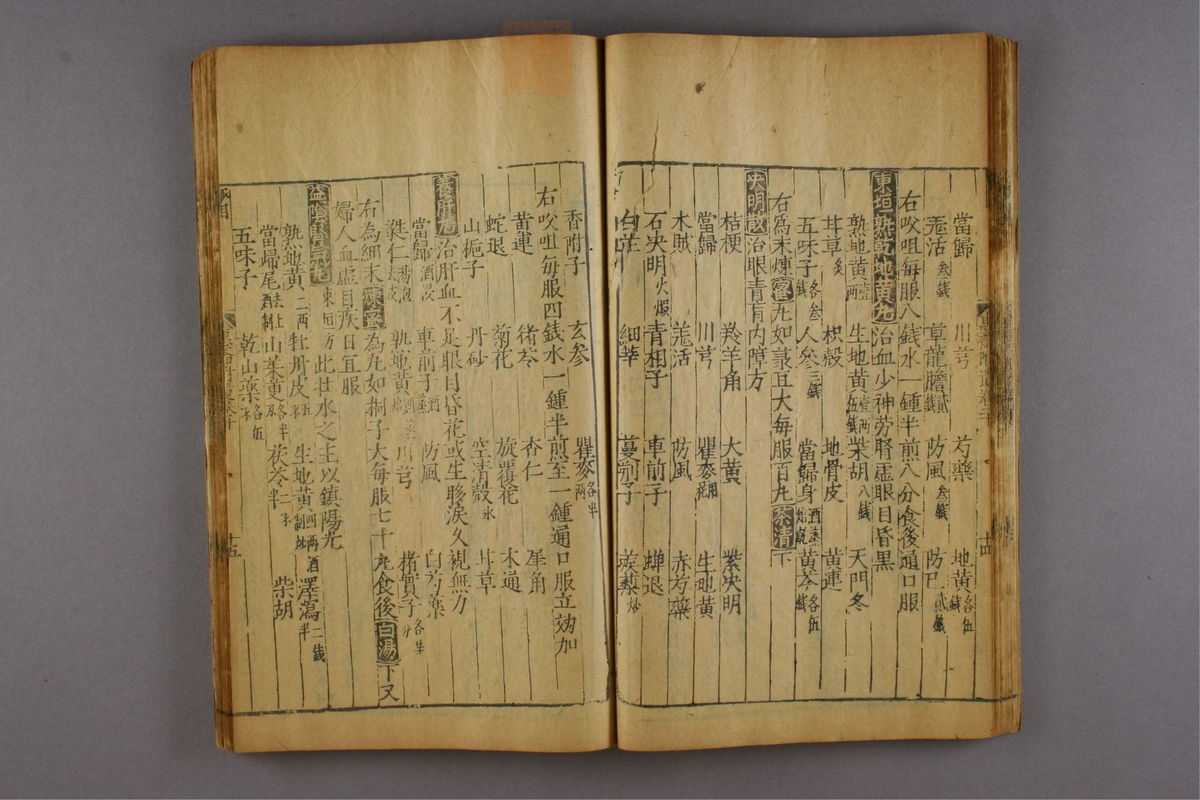 當歸 川芎 芍藥 地黃各伍錢
羗活叁錢 草龍膽貳錢 防風叁錢 防巳貳錢
右㕮咀每服八錢水一鍾半煎八分食後通口服
東垣熟乾地黃丸治血少神勞腎虛眼目昏黑
熟地黃壹兩 生地黃壹兩伍錢 柴胡八錢 天門冬
甘草炙 枳殼 地骨皮 黃連
五味子各叁錢 人參三錢 當歸身酒蒸焙乾 黃芩各伍錢
右爲末煉蜜丸如菉豆大每服百丸茶清下
决明散治眼青盲內障方
桔梗 羚羊角 大黃 紫决明
當歸 川芎 瞿麥 生地黃
木賊 羗活 防風 赤芍藥
石决明火煅 青相子 車前子 蟬退
白芷 細辛 蔓荆子 蒺藜炒
十四
香附子 玄參 瞿麥各半兩
右㕮咀每服四錢水一鍾半煎至一鍾通口服立効加
黃連 猪苓 杏仁 犀角
蛇退 菊花 旋覆花 木通
山梔子 丹砂 空清殼水 甘草
養肝丸治肝血不足眼目昏花或生眵淚久視無力
當歸酒浸 車前子酒蒸 防風 白芍藥
蕤仁湯泡去皮 熟地黃酒蒸 川芎 楮實子各半分
右為細末煉蜜為丸如桐子大每服七十丸食後白湯下又
婦人血虛目疾日宜服
益陰腎氣丸東垣方此壯水之主以鎮陽光
熟地黃二兩 牡丹皮五 生地黃四兩酒制炒 澤瀉二錢半
當歸尾去土酒制 山茱萸各半 茯苓二 柴胡
五味子 乾山藥各伍
十五